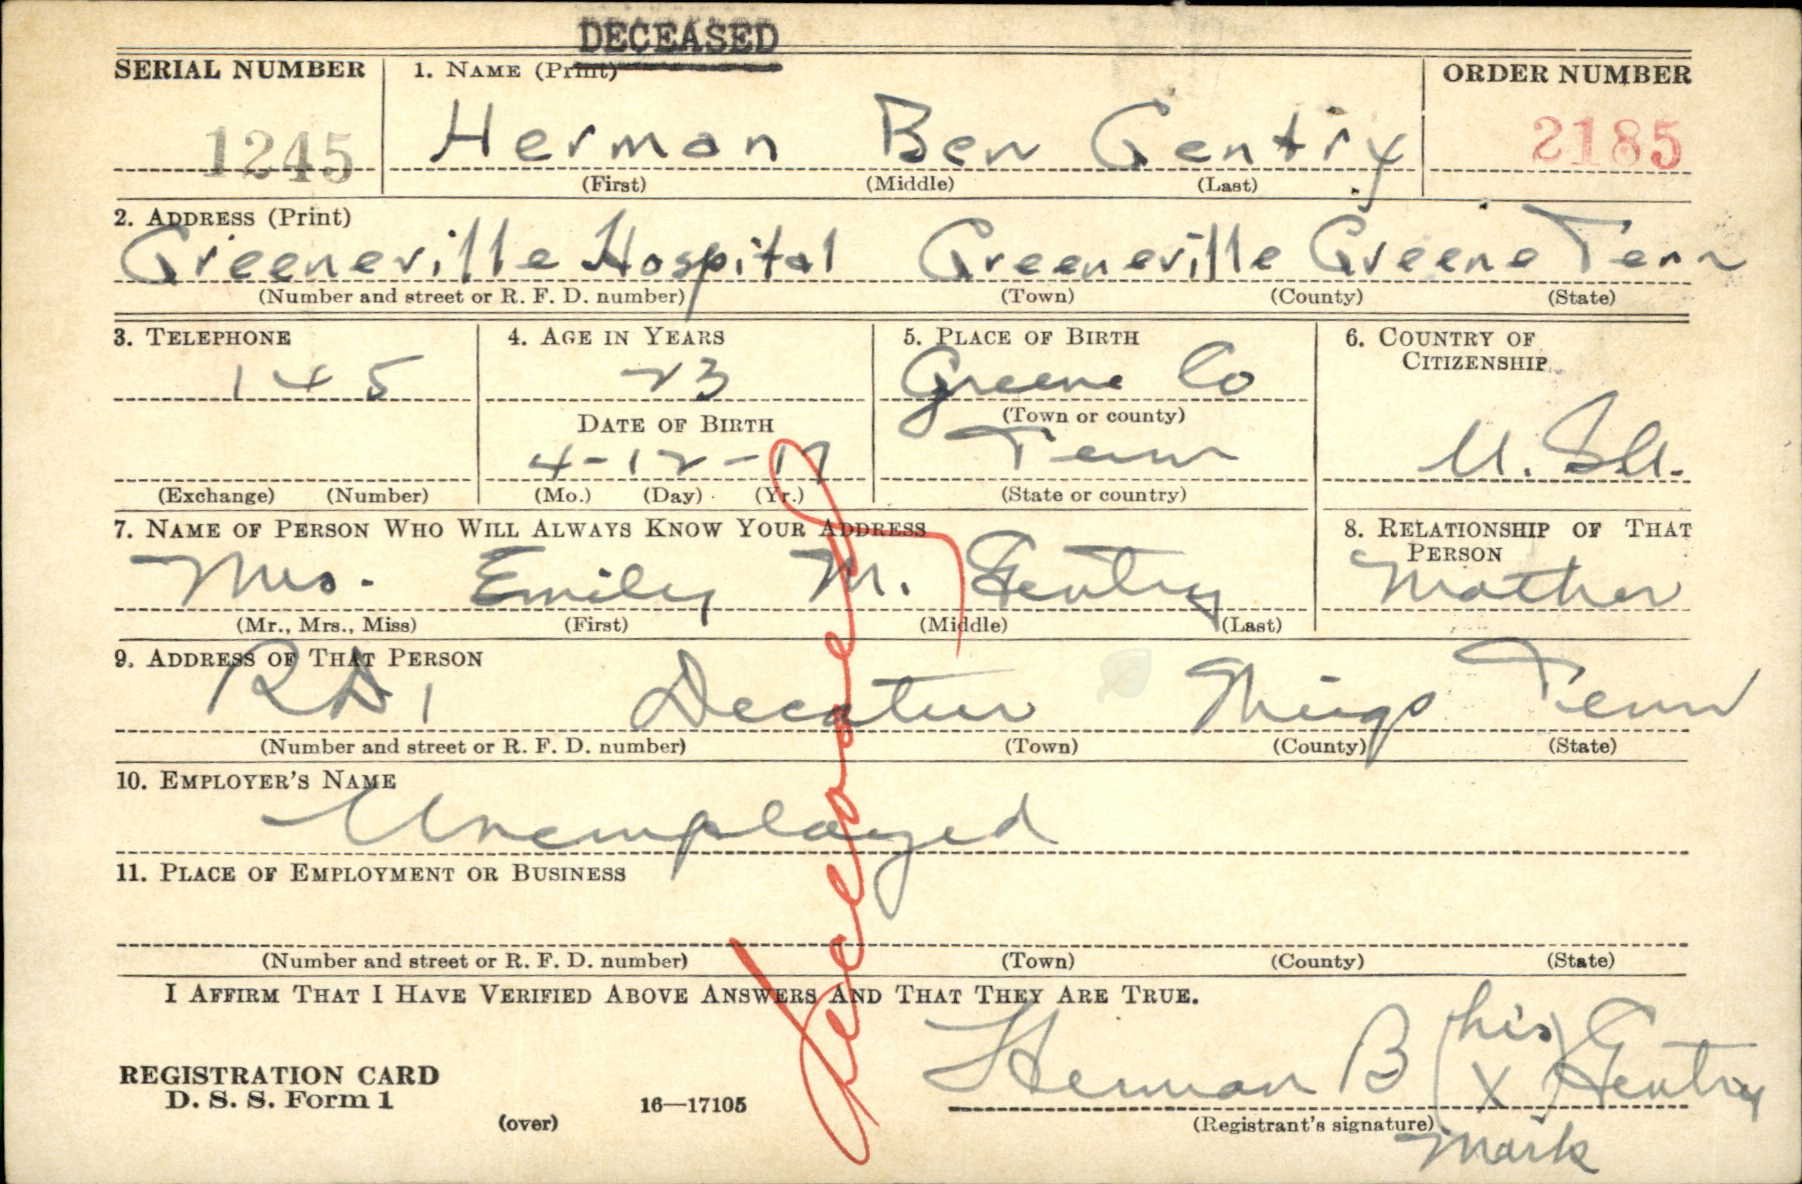 DECEASED
SERIAL NUMBER 1. NAME (Print) ORDER NUMBER
1245 Herman Ben Gentry 2185
(First) (Middle) (Last)
2. ADDRESS (Print)
Greeneville Hospital Greeneville Greene Tenn
(Number and street or R. F. D. number) (Town) (County) (State)
3. TELEPHONE 4. AGE IN YEARS 5. PLACE OF BIRTH 6. COUNTRY OF CITIZENSHIP
145 23 Greene Co
DATE OF BIRTH (Town or county)
4-12-17 Tenn U.S.A.
(Exchange) (Number) (Mo.) (Day) (Yr.) (State or country)
7. NAME OF PERSON WHO WILL ALWAYS KNOW YOUR ADDRESS 8. RELATIONSHIP OF THAT PERSON
Mrs. Emily M. Gentry Mother
(Mr., Mrs., Miss) (First) (Middle) (Last)
9. ADDRESS OF THAT PERSON
RD 1 Decatur Meigs Tenn
(Number and street or R. F. D. number) (Town) (County) (State)
10. EMPLOYER'S NAME
Unemployed
11. PLACE OF EMPLOYMENT OR BUSINESS
(Number and street or R. F. D. number) (Town) (County) (State)
I AFFIRM THAT I HAVE VERIFIED ABOVE ANSWERS AND THAT THEY ARE TRUE.
Deceased
REGISTRATION CARD
D. S. S. Form 1
(over)
16—17105
Herman B (his X mark) Gentry
(Registrant's signature)